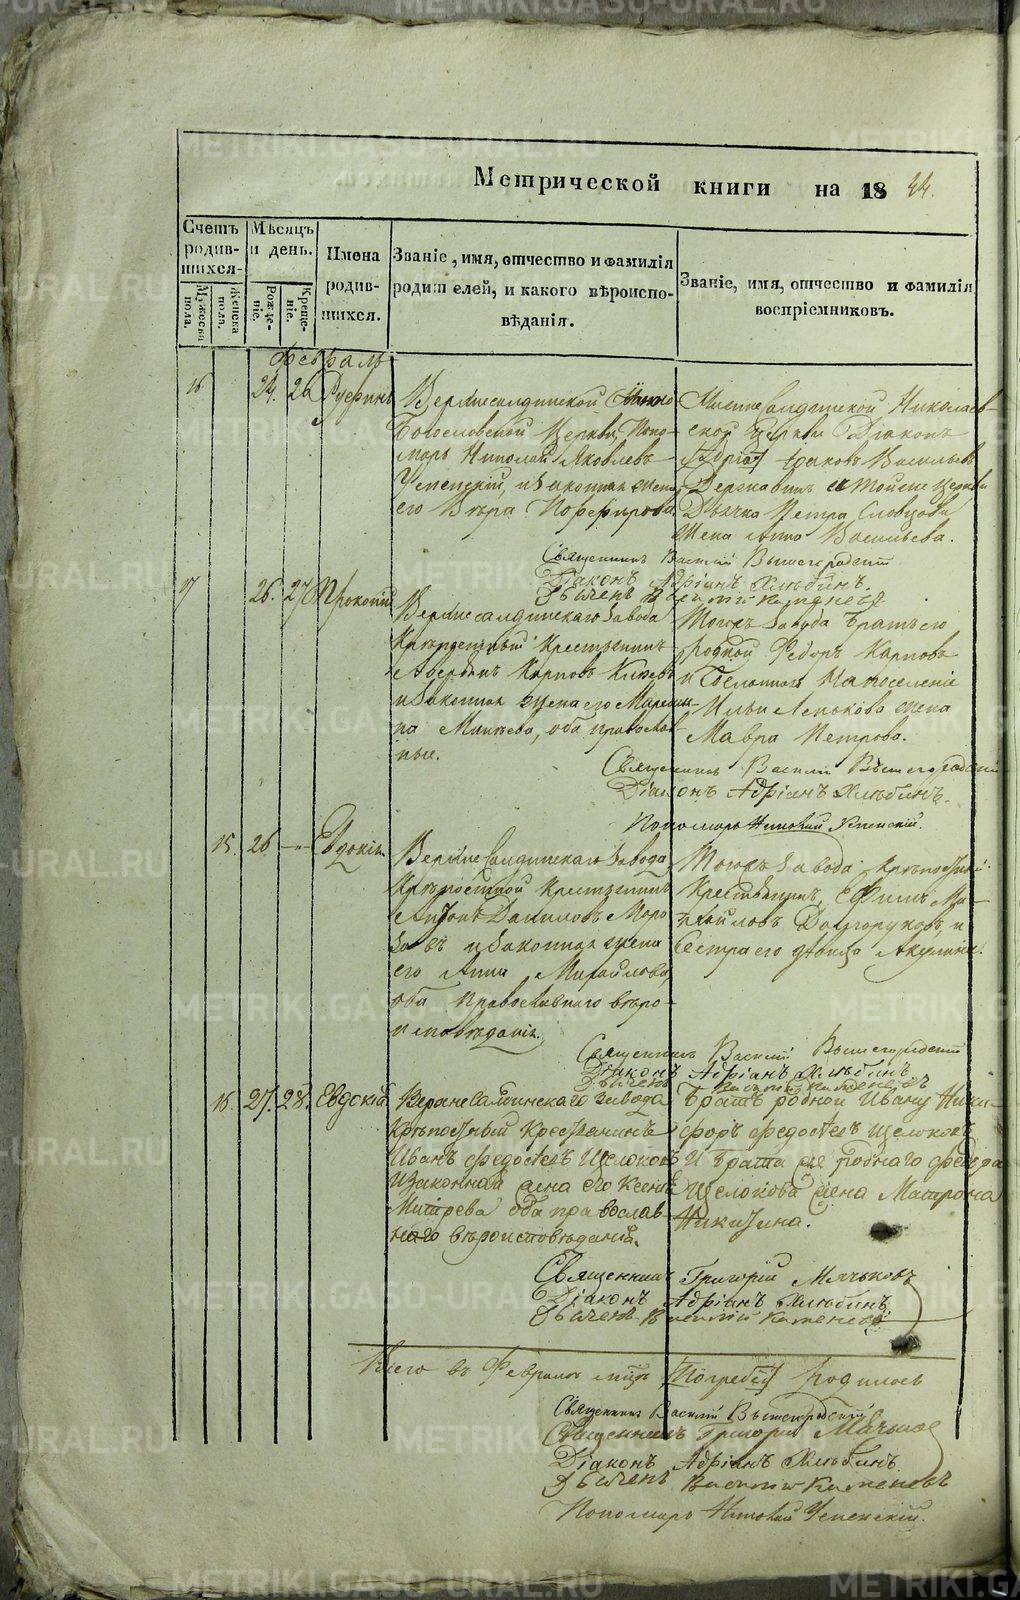 Метрической книги на 18 44.
Счетъ родившихся.
Мужеска пола.
Женска пола.
Мѣсяцъ и день.
Рожденіе.
Крещеніе.
Имена родившихся.
Званіе, имя, отчество и фамилія
родителей, и какого вѣроиспо-
вѣданія.
Званіе, имя, отчество и фамилія
воспріемниковъ.
Февраль
16 24. 26 Руфинъ
Верхнесалдинской
Богословской Церкви, Поно-
марь Николай Яковлевъ
Успенскій, и законная жена
его Вѣра Порфирова.
Нижнесалдинской Николаев-
ской Церкви Діаконъ
Іаковъ Васильевъ
Державинъ и тойже Церкви
Дьячка Петра Словцова
жена Анна Васильева.
Священникъ Василій Вышегородскій
Діаконъ Адріанъ Хлѣбинъ.
Дьячекъ Василій Каменевъ
17 26. 27 Прокопій
Верхнесалдинскаго Завода
Крестьянинъ
Карповъ
и законная жена его Мар
на оба православ-
ные.
Тогожъ Завода братъ его
родной Федоръ Карповъ
и на поселеніе
Ильи жена
Мавра Петрова.
Священникъ Василій Вышегородскій
Діаконъ Адріанъ Хлѣбинъ.
Пономарь Николай Успенскій.
15. 26 — Евдокія.
Верхнесалдинскаго Завода
Крѣпостной Крестьянинъ
Антонъ Даниловъ Моро
зовъ и законная жена
его Анна Михайлова,
оба Православнаго вѣро-
исповѣданія.
Тогожъ Завода Крѣпостной
Крестьянинъ, Ефимъ Ми-
хайловъ Долгоруковъ, и
Сестра его дѣвица Акулина.
Священникъ Василій Вышегородскій
Діаконъ Адріанъ Хлѣбинъ
Дьячекъ Василій Каменевъ
16. 27. 28. Евдокія
Верхнесалдинскаго завода
Крѣпостный Крестьянинъ
Иванъ Федосѣевъ Щелоковъ
и законная жена его Ксенія
Митрева оба православ-
наго вѣроисповѣданія.
Братъ родной Ивану Ники-
форъ Федосѣевъ Щелоковъ
И брата же роднаго Федора
Щелокова жена Матрона
Никитина.
Священникъ Григорій Мячковъ
Діаконъ Адріанъ Хлѣбинъ
Дьячекъ Василій Каменевъ
Всего въ Февралѣ мцѣ родилось
Священникъ Василій Вышегородскій
Священникъ Григорій Мячковъ
Діаконъ Адріанъ Хлѣбинъ
Дьячекъ Василій Каменевъ
Пономарь Николай Успенскій.
METRIKI.GASO-URAL.RU